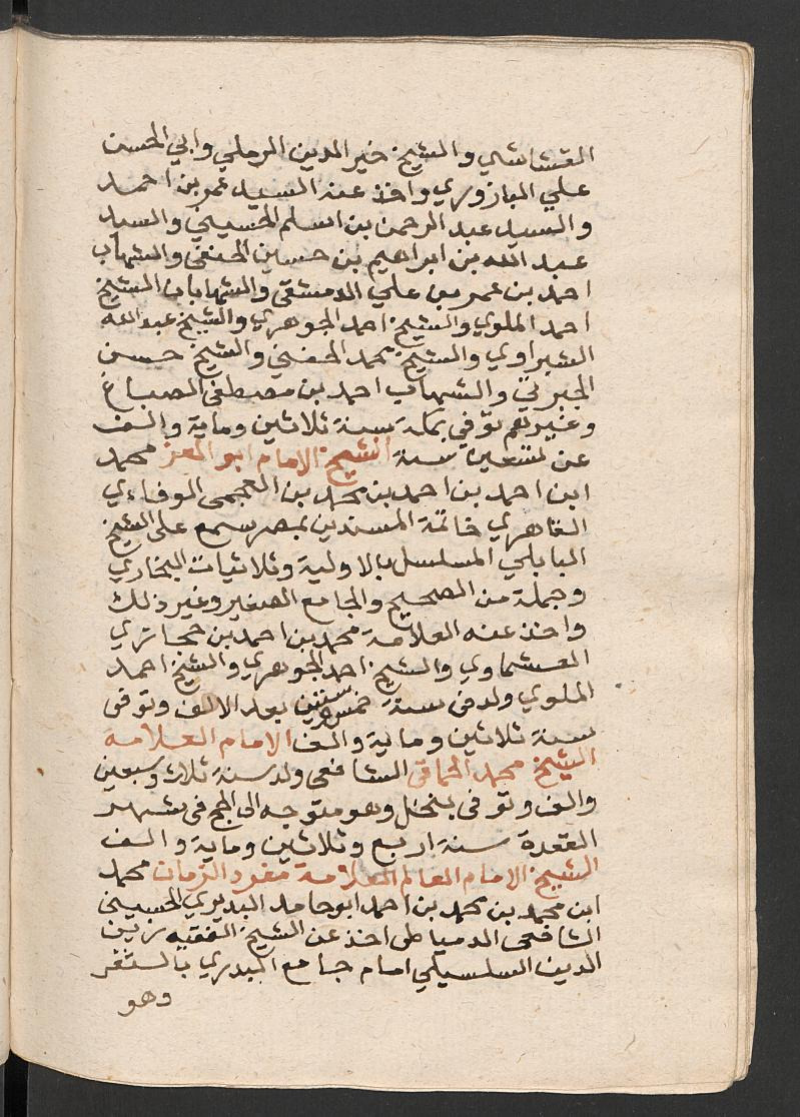 القشاشي والشيخ خير الدين الرملي وابي الحسن
علي البازوري واخذ عنه السيد عمر بن احمد
والسيد عبد الرحمن بن اسلم الحسيني والسيد
عبد الله بن ابراهيم بن حسين الحنفي والشهاب
احمد بن عمر بن علي الدمشقي والشهابان الشيخ
احمد الملوي والشيخ احمد الجوهري والشيخ عبد الله
الشبراوي والشيخ محمد الحفني والشيخ حسن
الجبرتي والشهاب احمد بن مصطفى الصباغ
وغيرهم توفي بمكة سنة ثلاثين وماية والف
عن تسعين سنة الشيخ الامام ابو العز محمد
ابن احمد بن احمد بن محمد بن العجمي الوفاءي
القاهري خاتمة المسندين بمصر سمع على الشيخ
البابلي المسلسل بالاولية وثلاثيات البخاري
وجملة من الصحيح والجامع الصغير وغير ذلك
واخذ عنه العلامة محمد بن احمد بن حجازي
العشماوي والشيخ احمد الجوهري والشيخ احمد
الملوي ولد في سنة خمس وستين بعد الالف وتوفى
سنة ثلاثين وماية والف الامام العلامه
الشيخ محمد الحماقى الشافعى ولد سنة ثلاث وسبعين
والف وتوفى بنخل وهو متوجه الى الحج فى شهر
القعدة سنة اربع وثلاثين وماية والف
الشيخ الامام العالم العلامة مفرد الزمان محمد
ابن محمد بن محمد بن احمد ابو حامد البديري الحسيني
الشافعى الدمياطى اخذ عن الشيخ الفقيه زين
الدين السلسيلي امام جامع البدري بالثغر
وهو